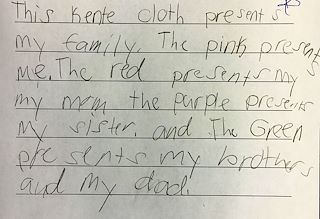 This Kente cloth presents
my family. The pink presents
me. The red presents my
my mom the purple presents
my sister. and The Green
presents my brothers
and my dad.